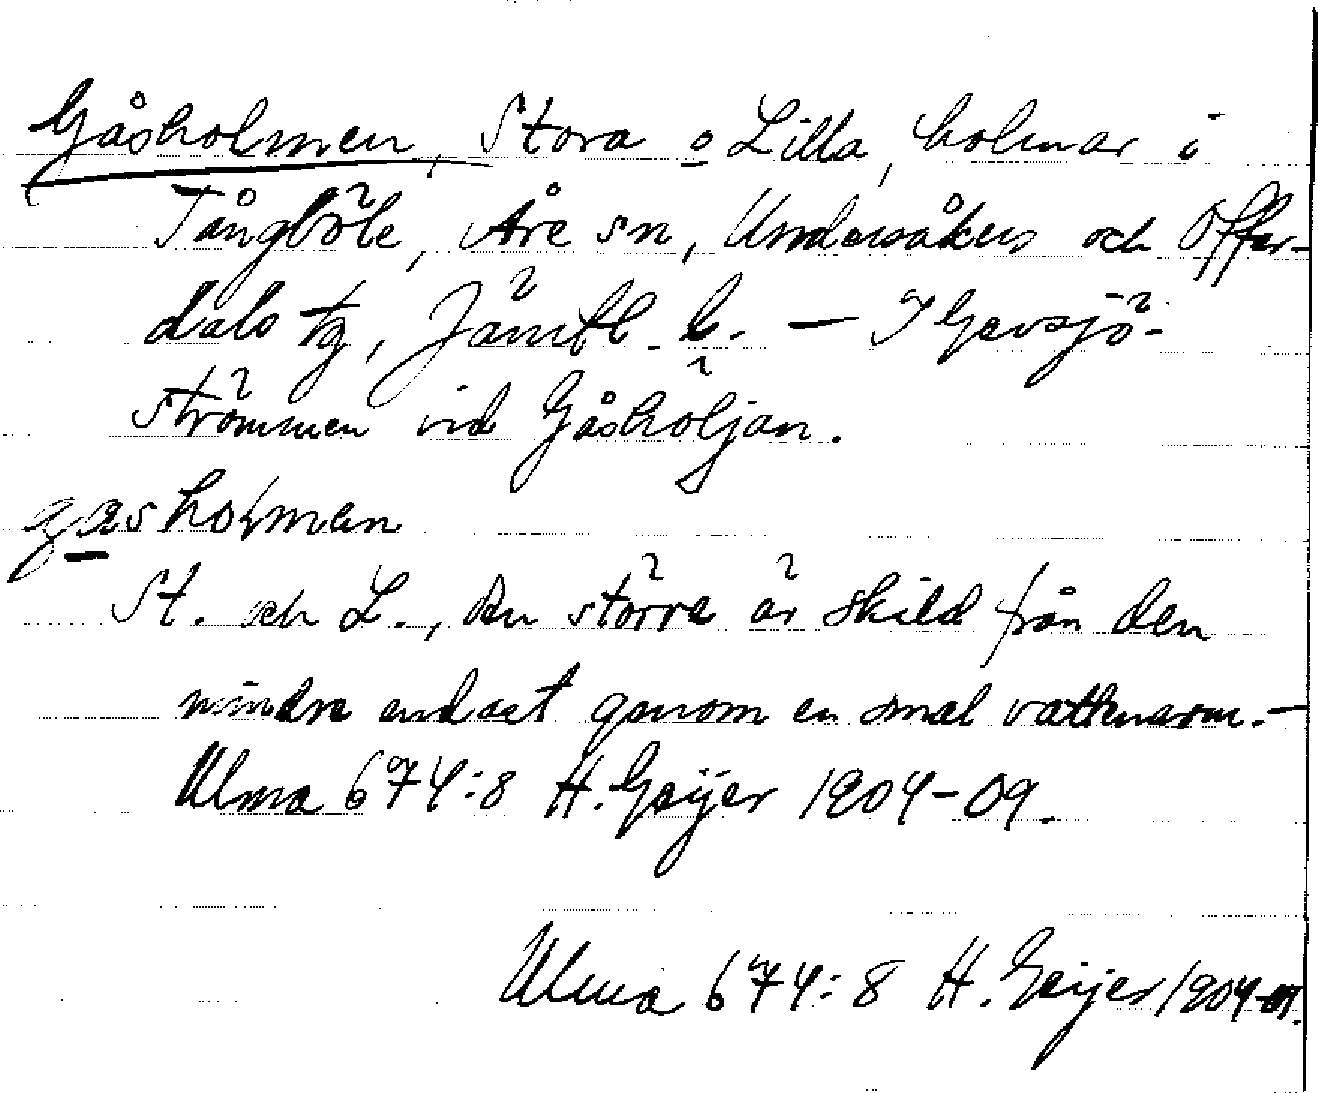 Gåsholmen, Stora o Lilla, holmar i
Tångböle, Åre sn, Undersåkers och Offer-
dals tg, Jämtl. l. – I Gevsjö-
strömmen vid Gåshöljan.
gasholmen
St. och L., den större är skild från den
mindre endast genom en smal vattenarm. –
Ulma 674:8 H. Geijer 1904-09.
Ulma 674:8 H. Geijer 1904-09.